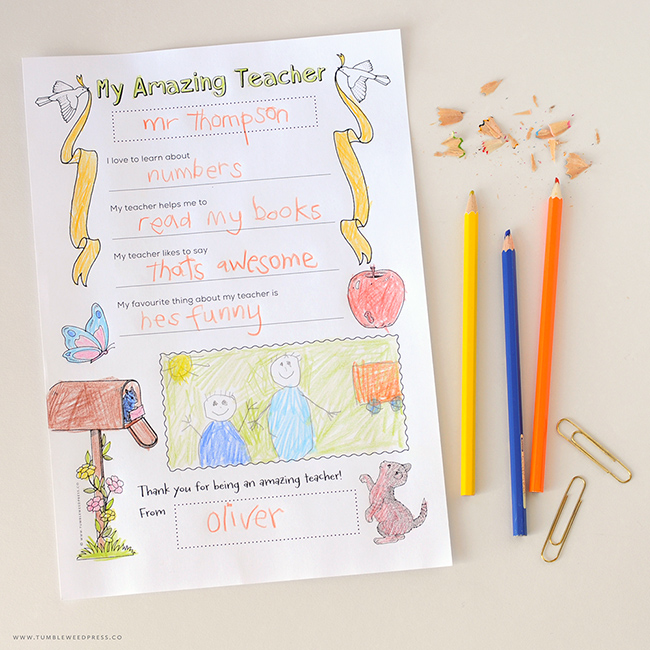 My Amazing Teacher
mr Thompson
I love to learn about
numbers
My teacher helps me to
read my books
My teacher likes to say
thats awesome
My favourite thing about my teacher is
hes funny
Thank you for being an amazing teacher!
From
oliver
WWW.TUMBLEWEEDPRESS.CO